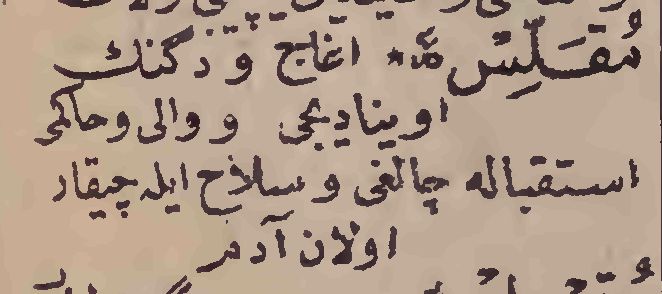 مُقَلِّسْ * اغاج و دكنك
اوينادیجی و والی وحاكمی
استقباله چالغی و سلاح ایله چیقار
اولان آدم